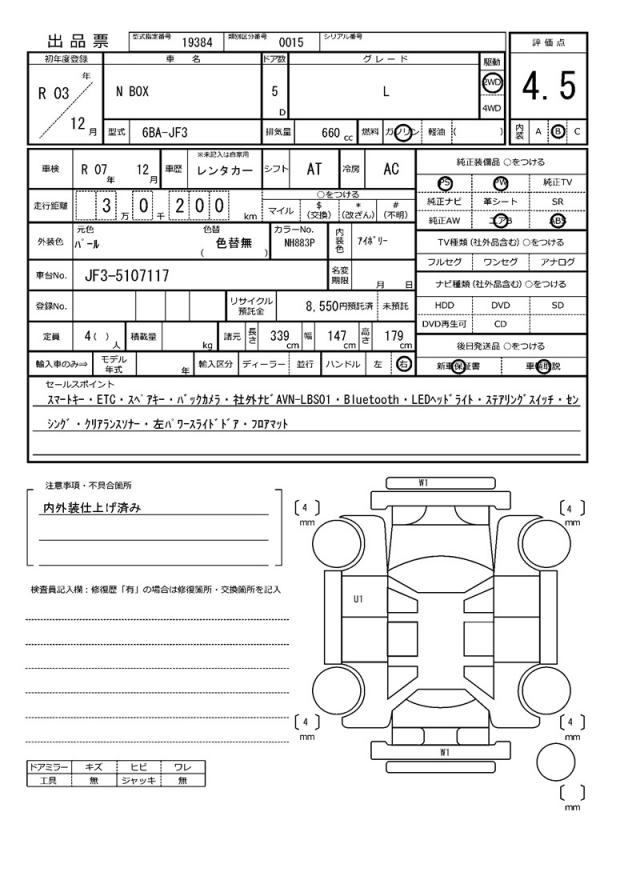 出品票 型式指定番号 19384 類別区分番号 0015 シリアル番号
評価点
4.5
初年度登録 車名 ドア数 グレード 駆動
R 03 年 12 月 N BOX 5 D L 2WD 4WD
型式 6BA-JF3 排気量 660 cc 燃料 ガソリン 軽油 ( )
内装 A B C
車検 R 07 年 12 月 車歴 ※未記入は自家用 レンタカー シフト AT 冷房 AC
走行距離 3 万 0 千 2 0 0 km ○をつける
マイル $ (交換) * (改ざん) # (不明)
外装色 元色 パール 色替 色替無 ( ) カラーNo. NH883P 内装色 アイボリー
車台No. JF3-5107117 名変期限 月 日
登録No. リサイクル預託金 8,550円預託済 未預託
定員 4 ( ) 人 積載量 kg 諸元 長さ 339 cm 幅 147 cm 高さ 179 cm
輸入車のみ⇒ モデル年式 年 輸入区分 ディーラー ・ 並行 ハンドル 左 右
純正装備品 ○をつける
PS PW 純正TV
純正ナビ 革シート SR
純正AW エアB ABS
TV種類 (社外品含む) ○をつける
フルセグ ワンセグ アナログ
ナビ種類 (社外品含む) ○をつける
HDD DVD SD
DVD再生可 CD
後日発送品 ○をつける
新車保証書 車輌取説
セールスポイント
スマートキー・ETC・スペアキー・バックカメラ・社外ナビAVN-LBS01・Bluetooth・LEDヘッドライト・ステアリングスイッチ・セン
シング・クリアランスソナー・左パワースライドドア・フロアマット
注意事項・不具合箇所
内外装仕上げ済み
検査員記入欄：修復歴「有」の場合は修復箇所・交換箇所を記入
W1
4 mm
4 mm
U1
4 mm
4 mm
W1
mm
ドアミラー キズ ヒビ ワレ
工具 無 ジャッキ 無